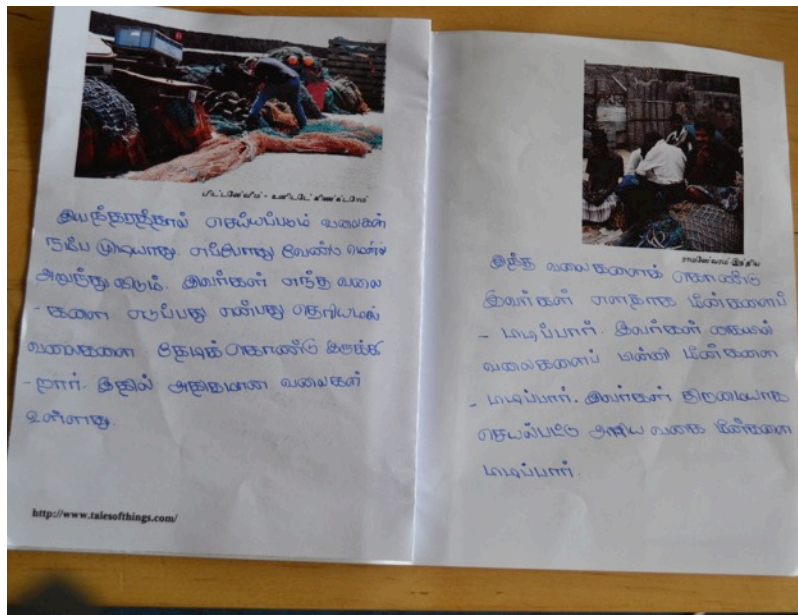 பிட்டன்வீம் - யுனிடடேட் கிண்க்டமே்
இயந்திரத்தால் செய்யப்படும் வலைகள்
நம்ப முடியாது. எப்போது வேண்டுமென்ற
அறுந்து விடும். இவர்கள் எந்த வலை
- களை எடுப்பது என்பது தெரியாமல்
வலைகளை தேடிக் கொண்டு இருக்கி
- றார். இதில் அதிகமான வலைகள்
உள்ளது.
http://www.talesofthings.com/
ராமனேவரம் இந்திய
இந்த வலைகளைக் கொண்டு
இவர்கள் எளதாக மீன்களைப்
- பிடிப்பார். இவர்கள் கையில்
வலைகளைப் பின்னி மீன்களை
- பிடிப்பார். இவர்கள் திறமையாக
செயல்பட்டு அரிய வகை மீன்களை
பிடிப்பார்.